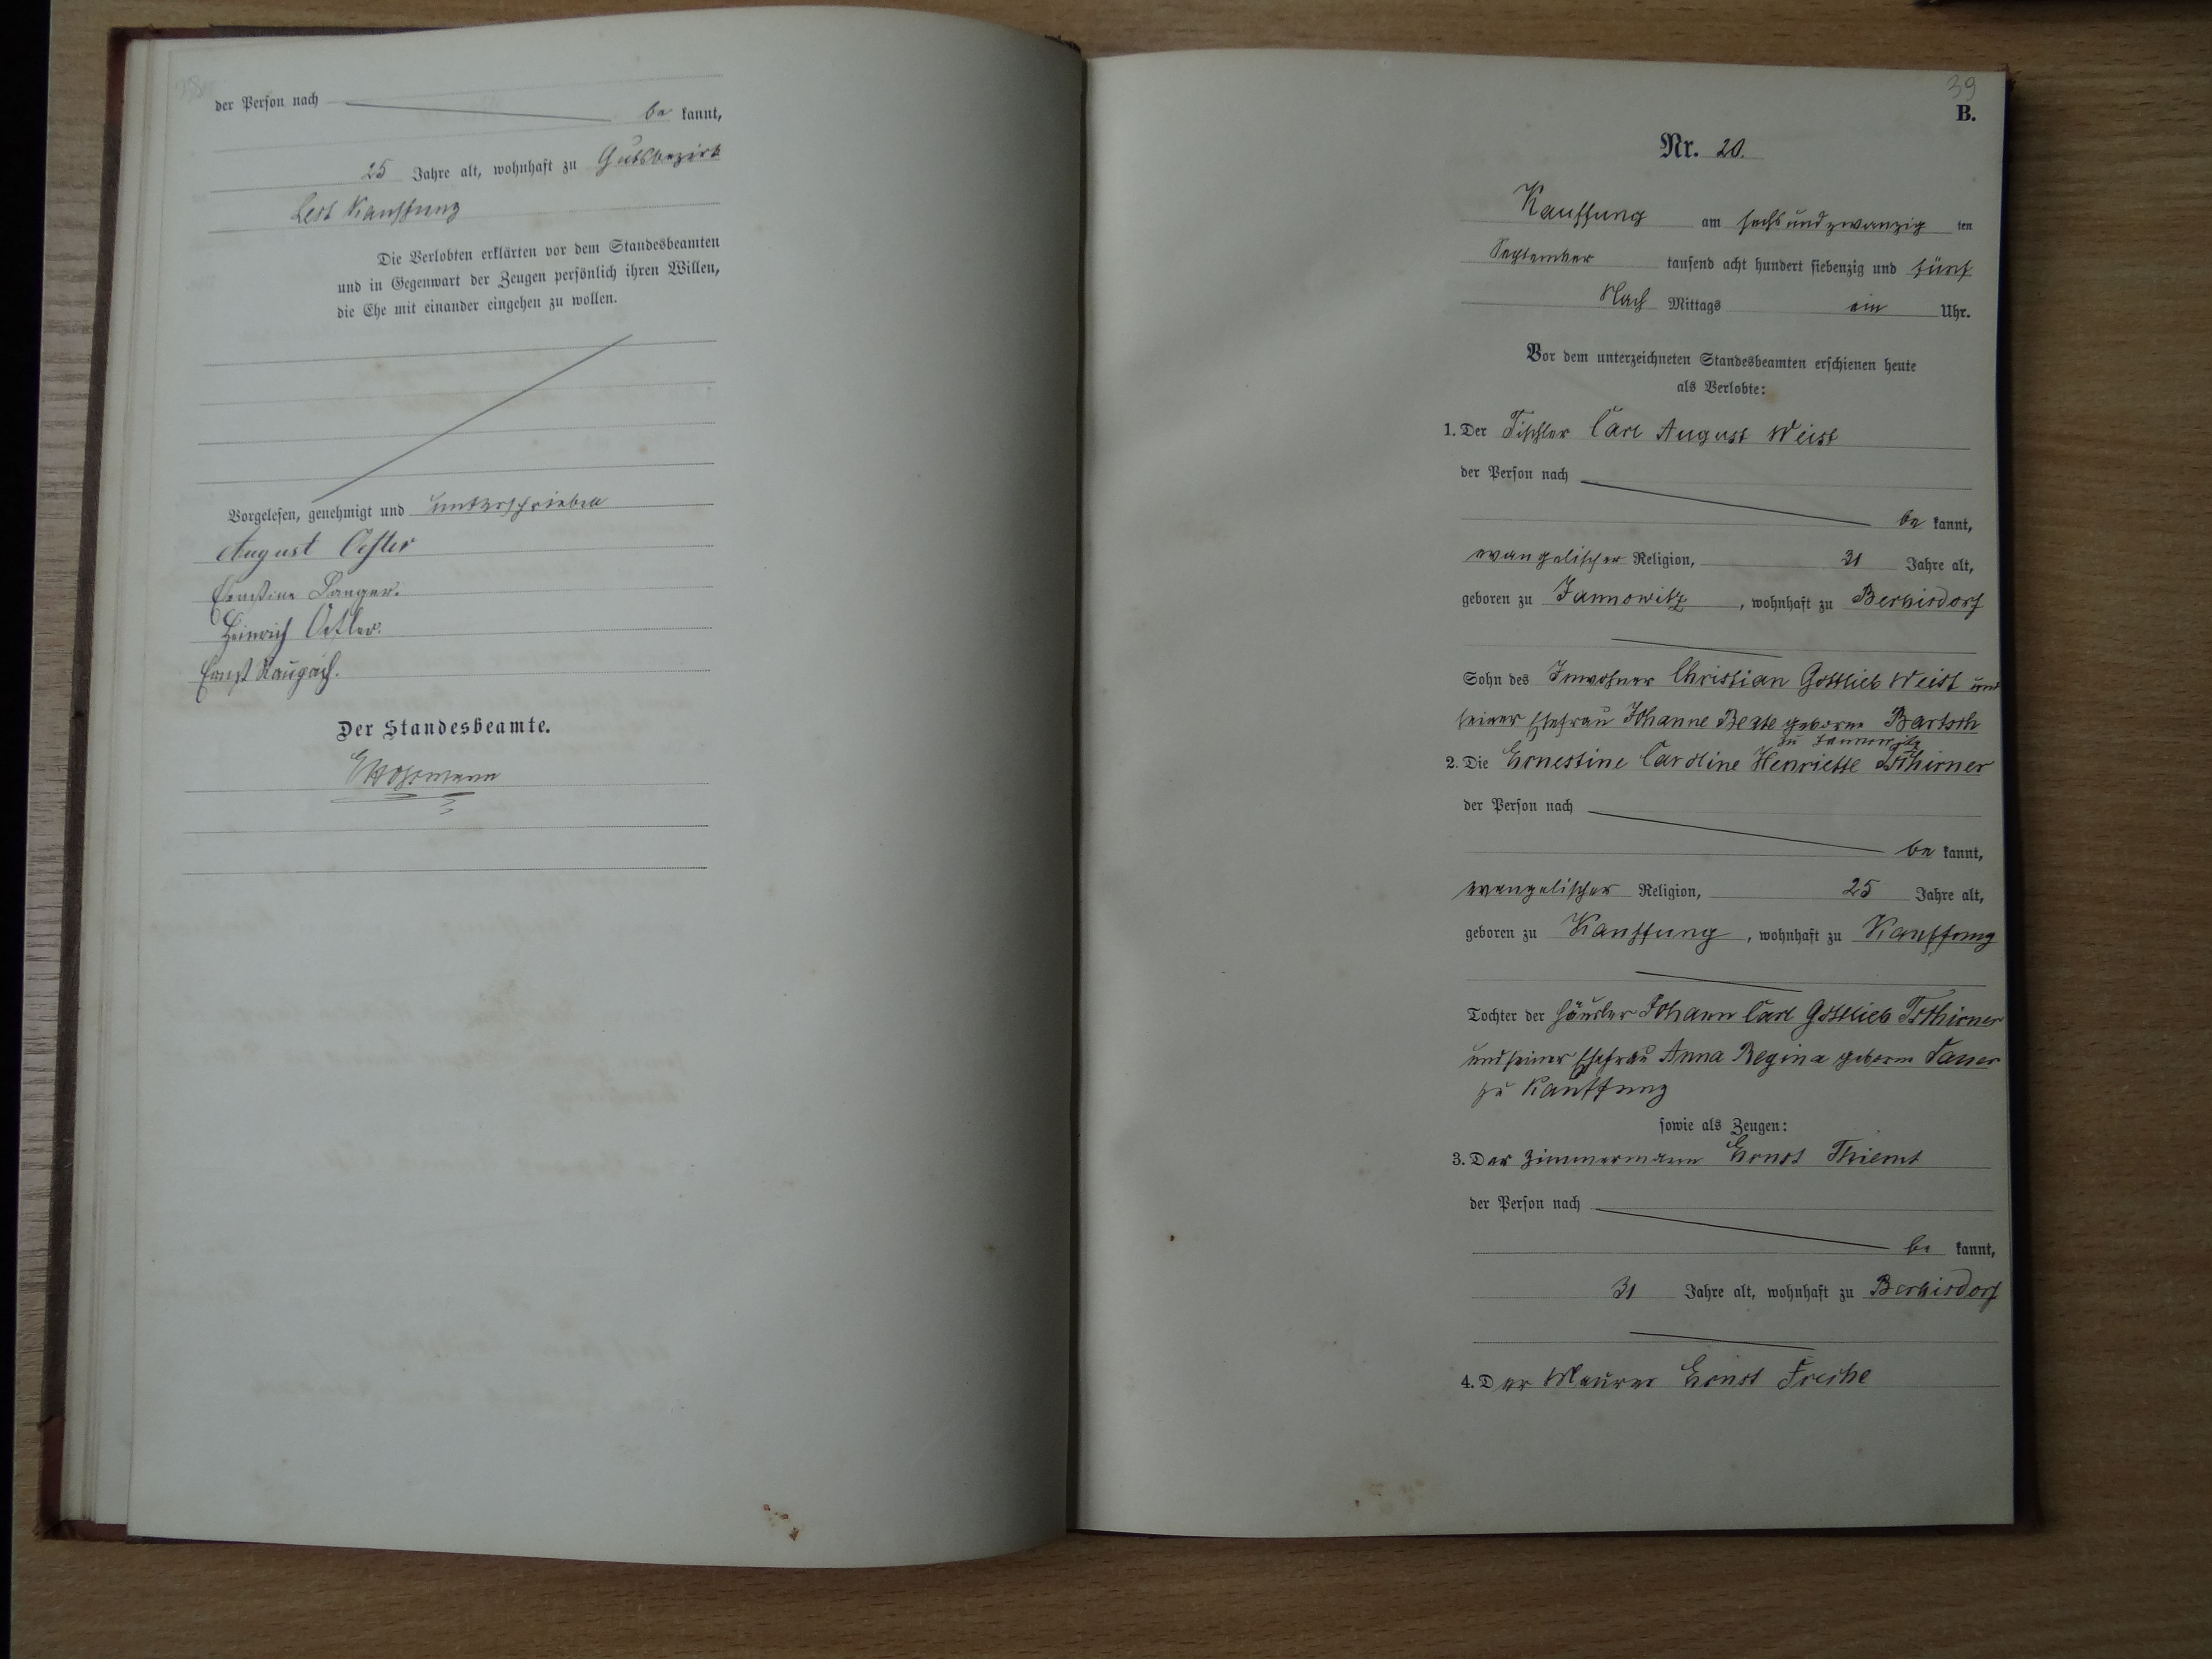 der Person nach be kannt,
25 Jahre alt, wohnhaft zu Gutsbezirk
Lest Kauffung
Die Verlobten erklärten vor dem Standesbeamten
und in Gegenwart der Zeugen persönlich ihren Willen,
die Ehe mit einander eingehen zu wollen.
Vorgelesen, genehmigt und unterschrieben
August
Ernestine Langer.
Heinrich
Ernst Raupach.
Der Standesbeamte.
39
B.
Nr. 20.
Kauffung am sechs und zwanzig ten
September tausend acht hundert siebenzig und fünf
Nach Mittags ein Uhr.
Vor dem unterzeichneten Standesbeamten erschienen heute
als Verlobte:
1. Der Tischler Carl August Weist
der Person nach
be kannt,
evangelischer Religion, 31 Jahre alt,
geboren zu Jannowitz, wohnhaft zu Berbisdorf
Sohn des Inwohner Christian Gottlieb Weist und
seiner Ehefrau Johanne Beate geborne Bartsch
zu Jannowitz
2. Die Ernestine Caroline Henriette Tschirner
der Person nach
be kannt,
evangelischer Religion, 25 Jahre alt,
geboren zu Kauffung, wohnhaft zu Kauffung
Tochter der Häusler Johann Carl Gottlieb Tschirner
und seiner Ehefrau Anna Regina geborne
zu Kauffung
sowie als Zeugen:
3. Der Zimmermann Ernst
der Person nach
be kannt,
31 Jahre alt, wohnhaft zu Berbisdorf
4. Der Maurer Ernst